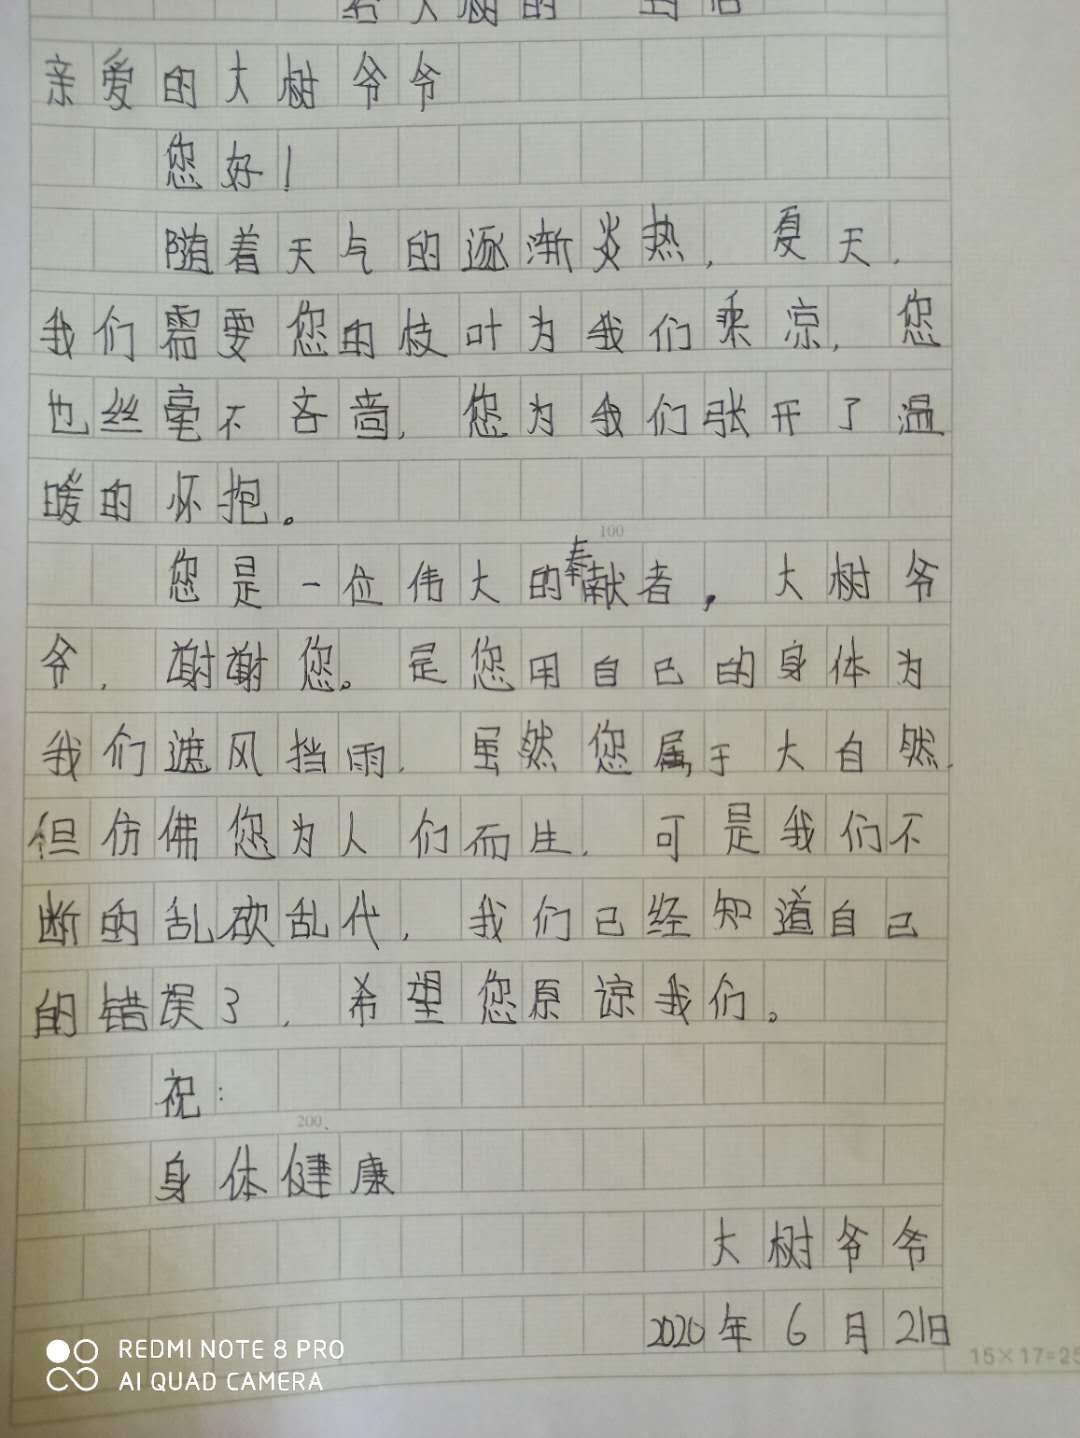 给大树的一封信
亲爱的大树爷爷
您好！
随着天气的逐渐炎热，夏天，
我们需要您的枝叶为我们乘凉，您
也丝毫不吝啬，您为我们张开了温
暖的怀抱。
100
您是一位伟大的奉献者，大树爷
爷，谢谢您。是您用自己的身体为
我们遮风挡雨，虽然您属于大自然，
但仿佛您为人们而生，可是我们不
断的乱砍乱代，我们已经知道自己
的错误了，希望您原谅我们。
祝：
200
身体健康
大树爷爷
2020年6月21日
15×17=25
REDMI NOTE 8 PRO
AI QUAD CAMERA